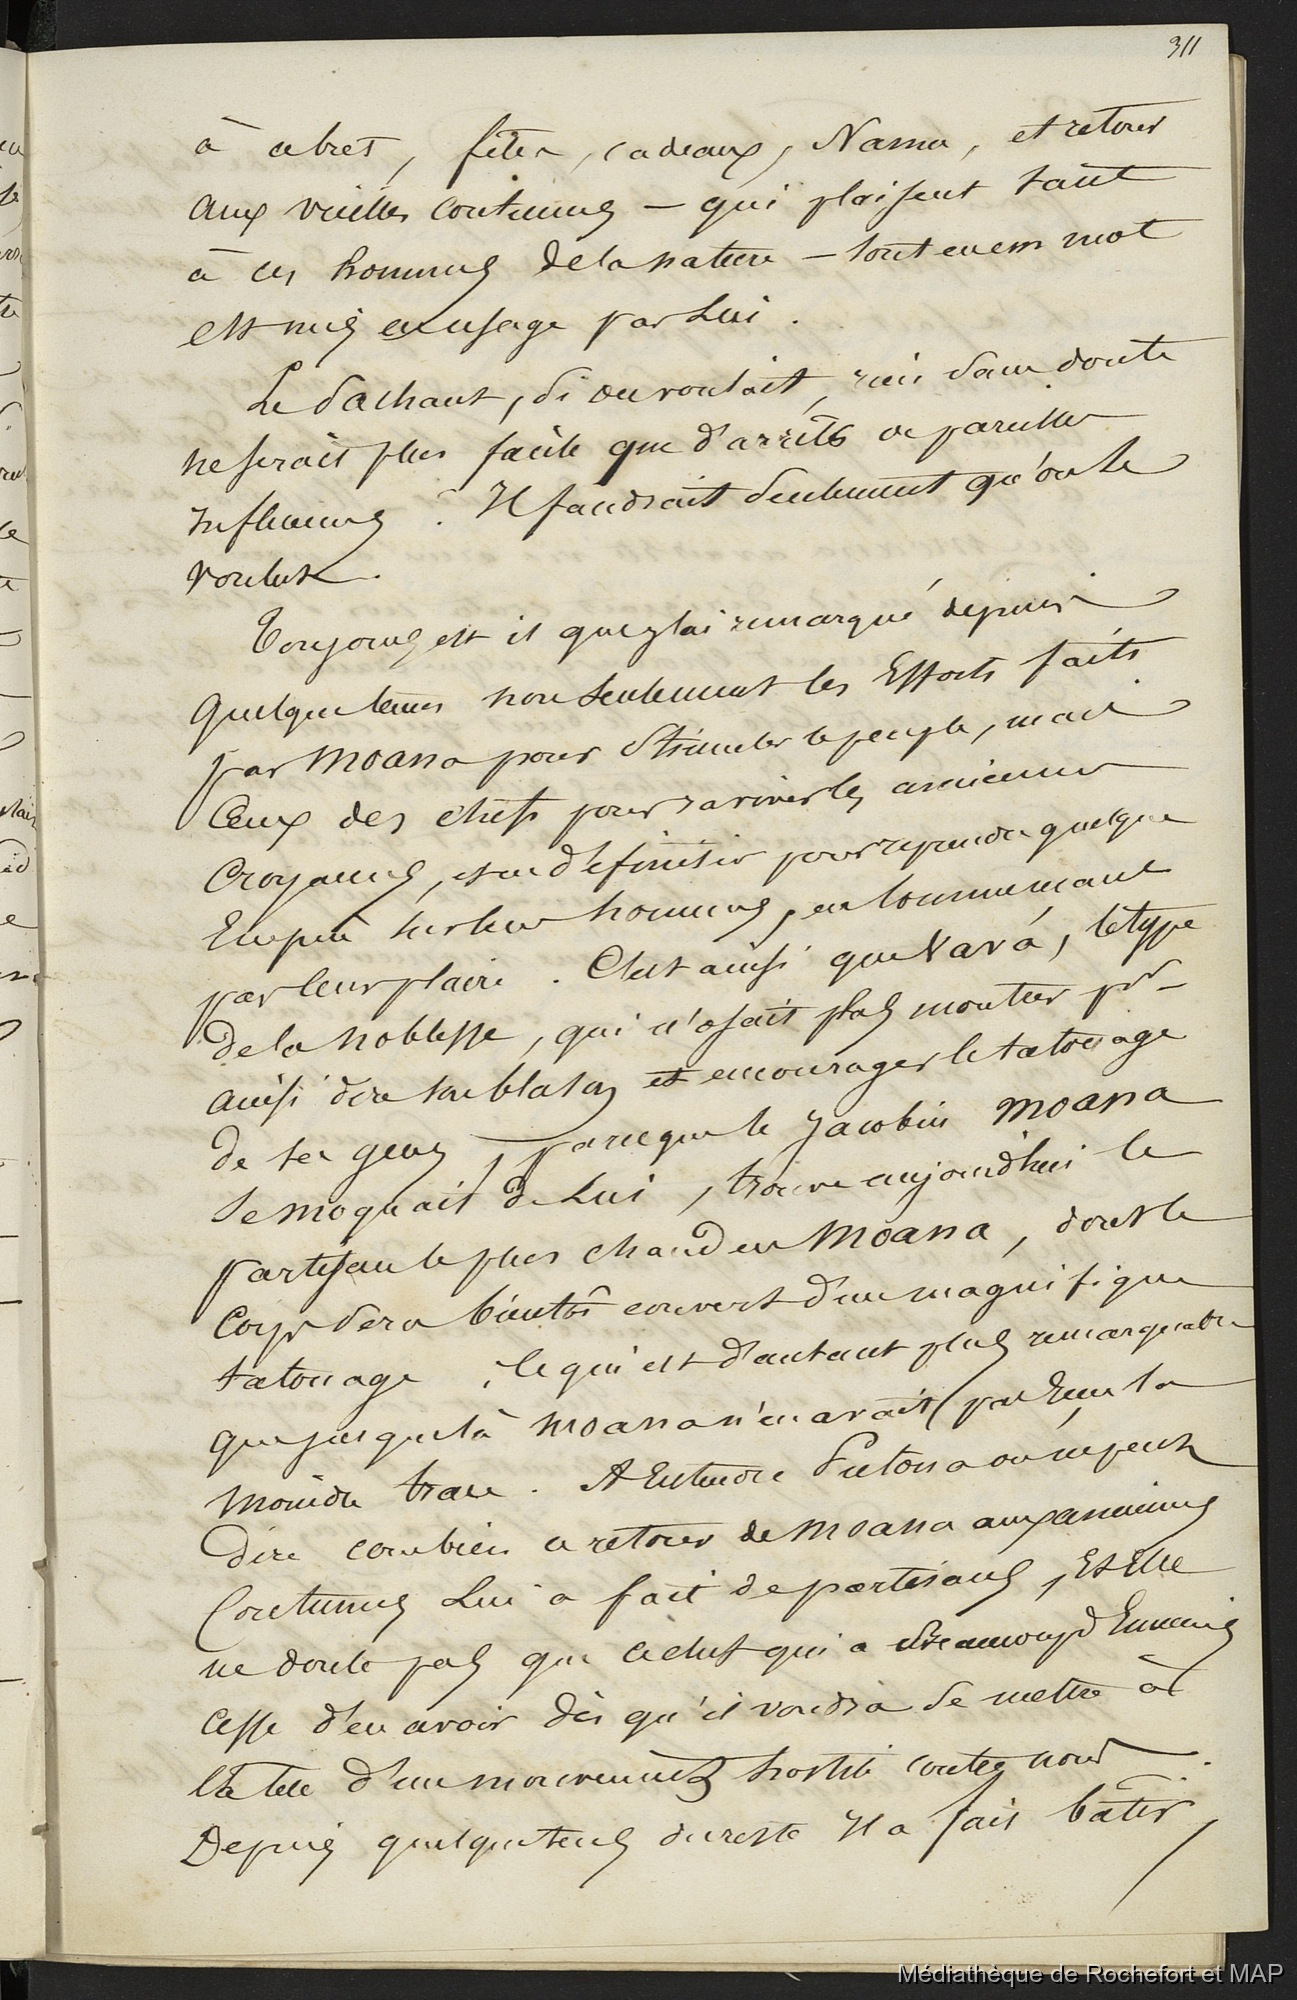 311
à cebret, fêtes, cadeaux, Nama, et retour
aux vieilles coutumes — qui plaisent tant
à ces hommes de la nature — tout en un mot
est mis en usage par Lui.
Le sachant, si on voulait, rien sans doute
ne serait plus facile que d'arrêter de pareilles
influences. Il faudrait seulement qu'on le
voulut.
Toujours est il que j'ai remarqué depuis
quelque tems non seulement les Efforts faits
par Moana pour stimuler le peuple, mais
Ceux des chefs pour raviver les anciennes
Croyances, et en définitif pour reprendre quelque
Empire sur leur hommes, en commencant
par leur plaire. C'est ainsi que Vavá, le type
de la noblesse, qui n'osait plus montrer pr
ainsi dire son blason et encourager le tatouage
de ses gens, parceque le Jacobin Moana
se moquait de Lui, trouve aujourdhui le
partisan le plus chaud en Moana, dont le
Corps sera bientôt couvert d'un magnifique
tatouage, ce qui est d'autant plus remarquable
que jusque là Moana n'en avait pas Eu la
moindre trace. A Entendre Putona on ne peut
Dire combien ce retour de Moana aux anciennes
Coutumes Lui a fait de partisans, Et Elle
ne doute pas que ce chef qui a beaucoup d'Ennemis
Cesse d'en avoir dès qu'il voudra se mettre à
la tête d'un mouvement hostile contre nous.
Depuis quelque tems du reste Il a fait bâtir,
Médiathèque de Rochefort et MAP